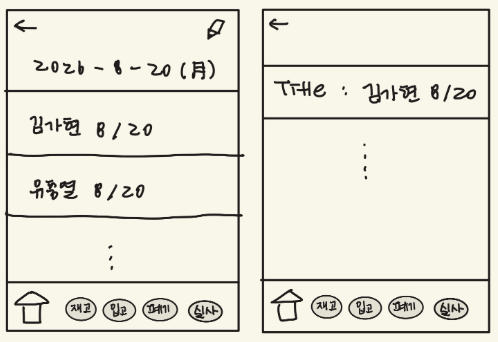 2026-8-20(月)
김가현 8/20
유동열 8/20
재고 입고 폐기 실사
Title : 김가현 8/20
재고 입고 폐기 실사